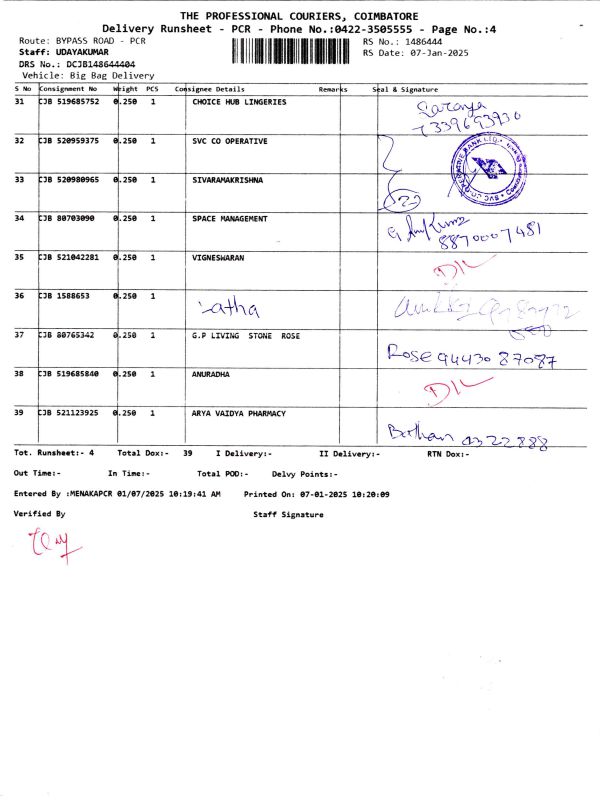 THE PROFESSIONAL COURIERS, COIMBATORE
Delivery Runsheet - PCR - Phone No.:0422-3505555 - Page No.:4
Route: BYPASS ROAD - PCR RS No.: 1486444
Staff: UDAYAKUMAR RS Date: 07-Jan-2025
DRS No.: DCJB148644404
Vehicle: Big Bag Delivery
S No Consignment No Weight PCS Consignee Details Remarks Seal & Signature
31 CJB 519685752 0.250 1 CHOICE HUB LINGERIES Saranya
7339693936
32 CJB 520959375 0.250 1 SVC CO OPERATIVE
33 CJB 520980965 0.250 1 SIVARAMAKRISHNA
34 CJB 80703090 0.250 1 SPACE MANAGEMENT
8870007481
35 CJB 521042281 0.250 1 VIGNESWARAN
36 CJB 1588653 0.250 1 Latha
37 CJB 80765342 0.250 1 G.P LIVING STONE ROSE
Rose 94430 87087
38 CJB 519685840 0.250 1 ANURADHA
39 CJB 521123925 0.250 1 ARYA VAIDYA PHARMACY
4322888
Tot. Runsheet:- 4 Total Dox:- 39 I Delivery:- II Delivery:- RTN Dox:-
Out Time:- In Time:- Total POD:- Delvy Points:-
Entered By :MENAKAPCR 01/07/2025 10:19:41 AM Printed On: 07-01-2025 10:20:09
Verified By Staff Signature